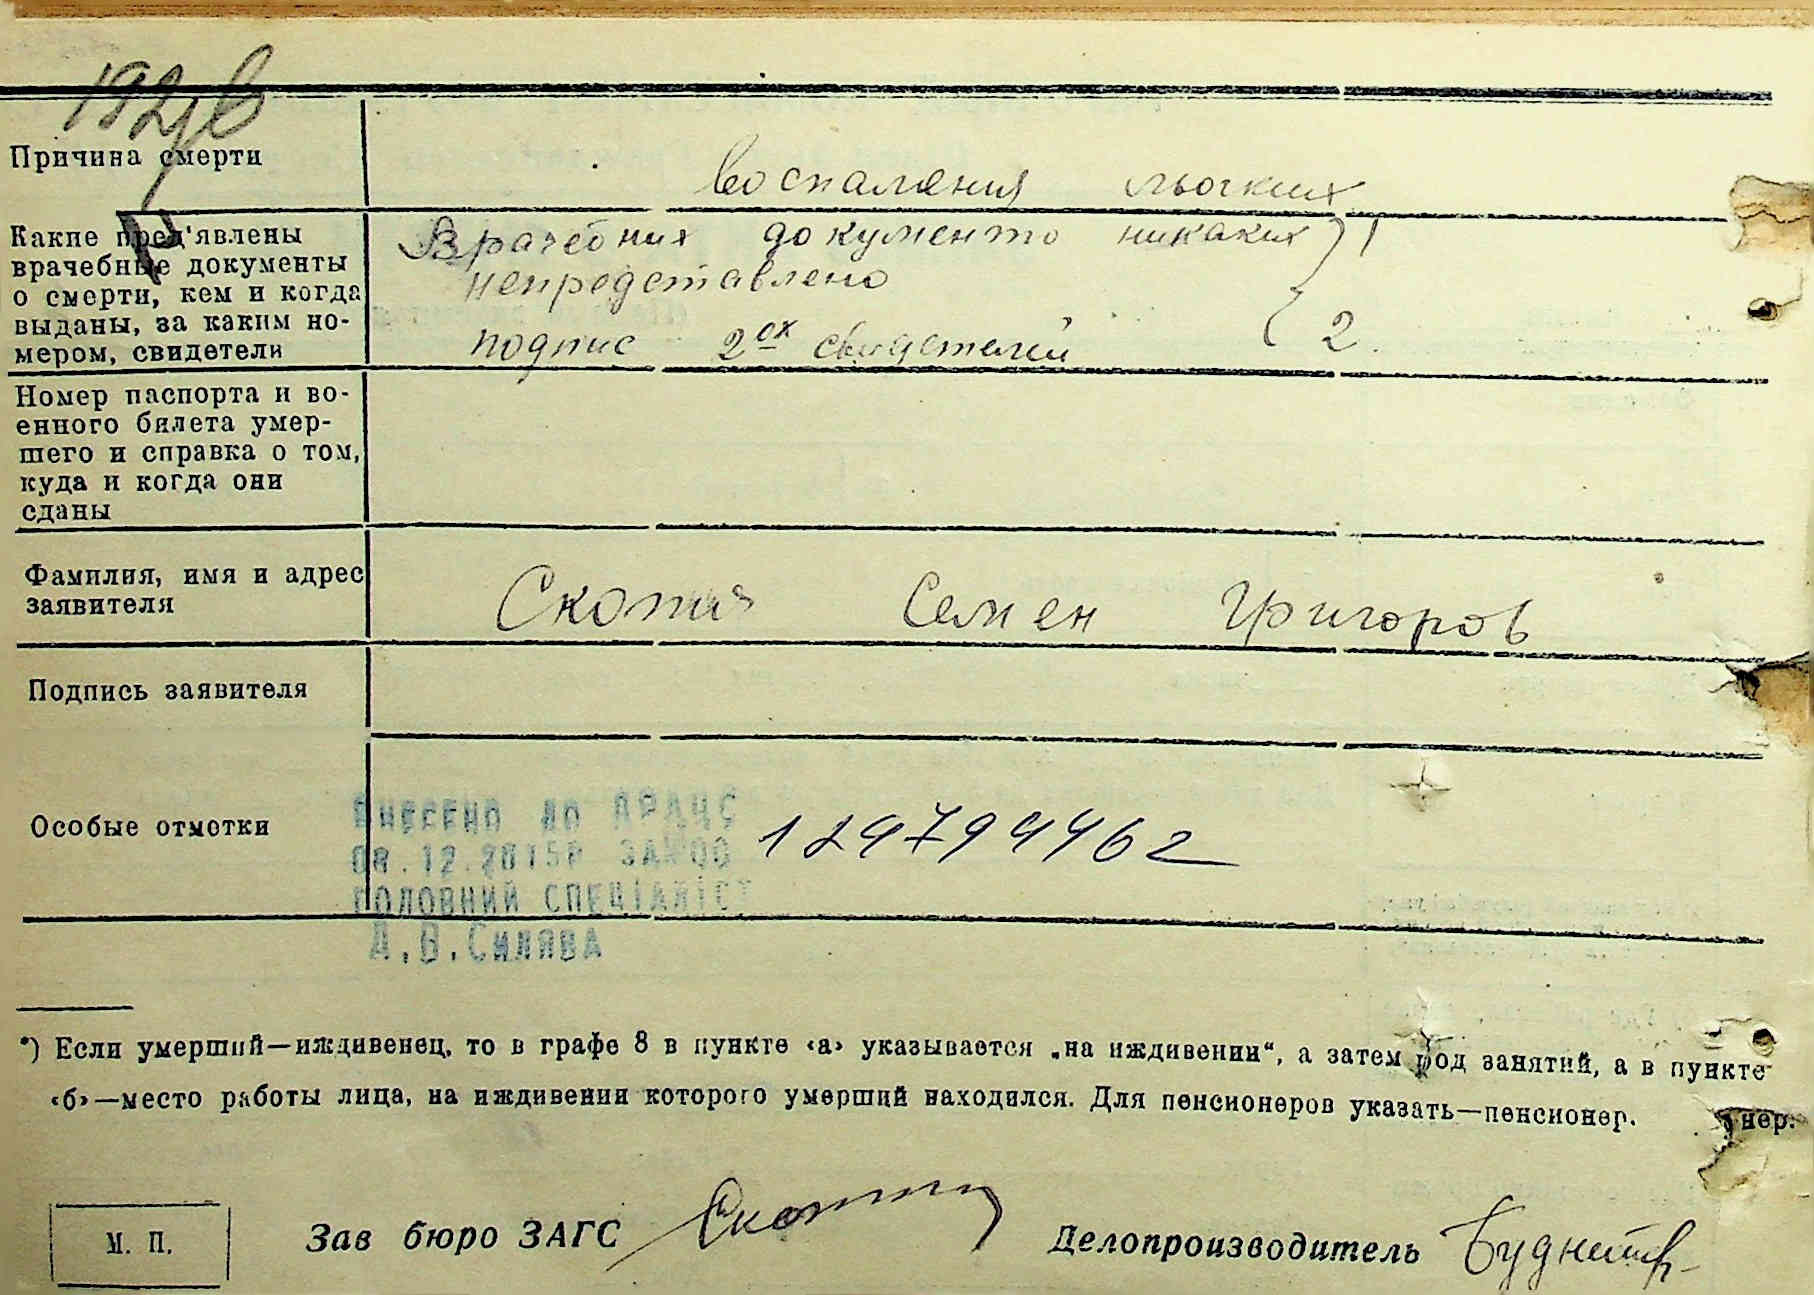 Причина смерти
воспаления льогких
Какие пред'явлены
врачебные документы
о смерти, кем и когда
выданы, за каким но-
мером, свидетели
Врачебних документо никаких 1
непредставлено
подпис 2ох свидетелей 2
Номер паспорта и во-
енного билета умер-
шего и справка о том,
куда и когда они
сданы
Фамилия, имя и адрес
заявителя
Семен Григоров
Подпись заявителя
Особые отметки
ВНЕСЕНО ДО ДРАЦС
08.12.2015Р ЗАМ00
ГОЛОВНИЙ СПЕЦІАЛІСТ
Д.В.СИЛЯВА
*) Если умерший—иждивенец, то в графе 8 в пункте «а» указывается „на иждивении“, а затем род занятий, а в пункте
«б»—место работы лица, на иждивении которого умерший находился. Для пенсионеров указать—пенсионер. нер.
М. П.
Зав бюро ЗАГС
Делопроизводитель